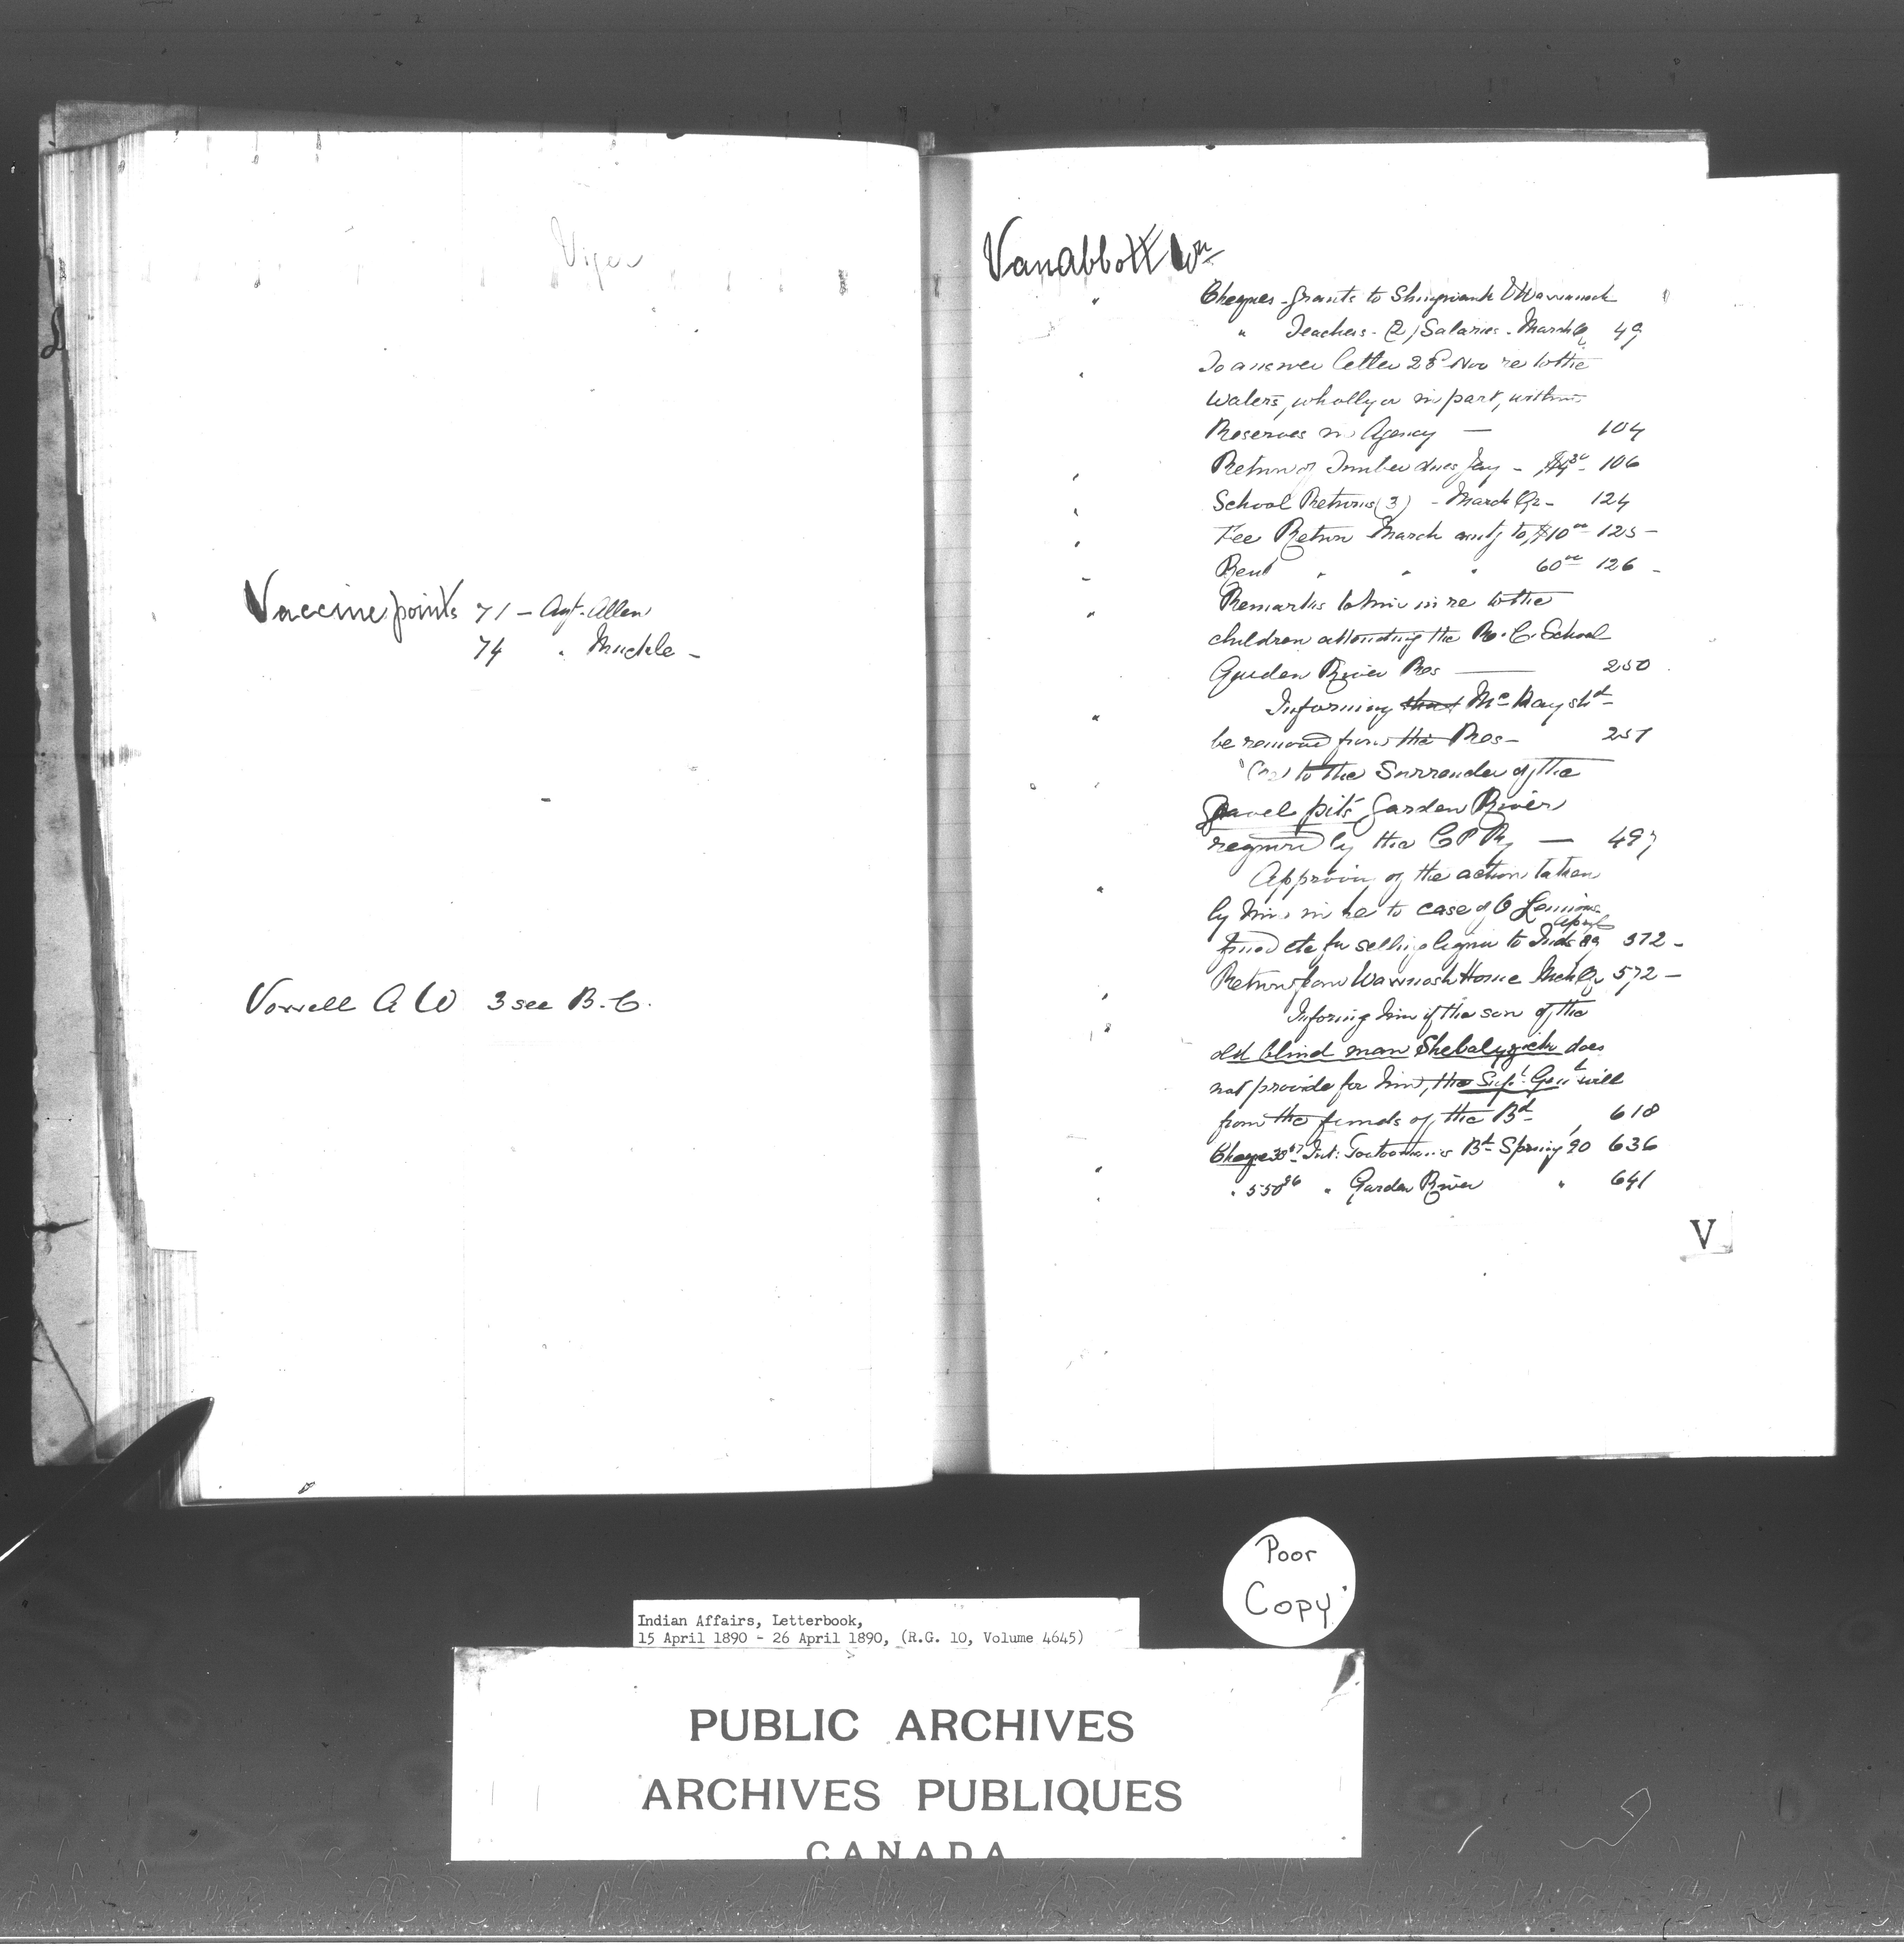 Viger
Vaccine points 71 - Agt. Allen
74 " Muckle -
Vowell A W 3 see B. C.
Vanabbott Wm
" Cheques - Grants to Shingwauk & Wawanosh
" Teachers - (2) Salaries - March Qr 49
To answer letter 28th Nov re to the
waters, wholly or in part, within
Reserves in Agency — 104
Return of Timber dues Jany - 106
School Returns (3) - March Qr - 124
Fee Return March amtg to $10 00 125 -
Rent " " " 60 00 126 -
Remarks to him in re to the
children attending the R. C. School
Garden River Res — 250
Informing that McKay shd
be removed from the Res - 251
(re) to the Surrender of the
gravel pits Garden River
required by the C P Ry — 497
Approving of the action taken
by him in re to case of
fined etc for selling liquor to Inds 89 572 -
Return from Wawanosh Home Mch Qr 572 -
Informing him if the son of the
old blind man does
not provide for him, the Supt. Genl will
from the funds of the Bd 618
Cheque Int: Bd Spring '90 636
" 550 96 " Garden River " 641
V
Poor
Copy
Indian Affairs, Letterbook,
15 April 1890 - 26 April 1890, (R.G. 10, Volume 4645)
PUBLIC ARCHIVES
ARCHIVES PUBLIQUES
CANADA